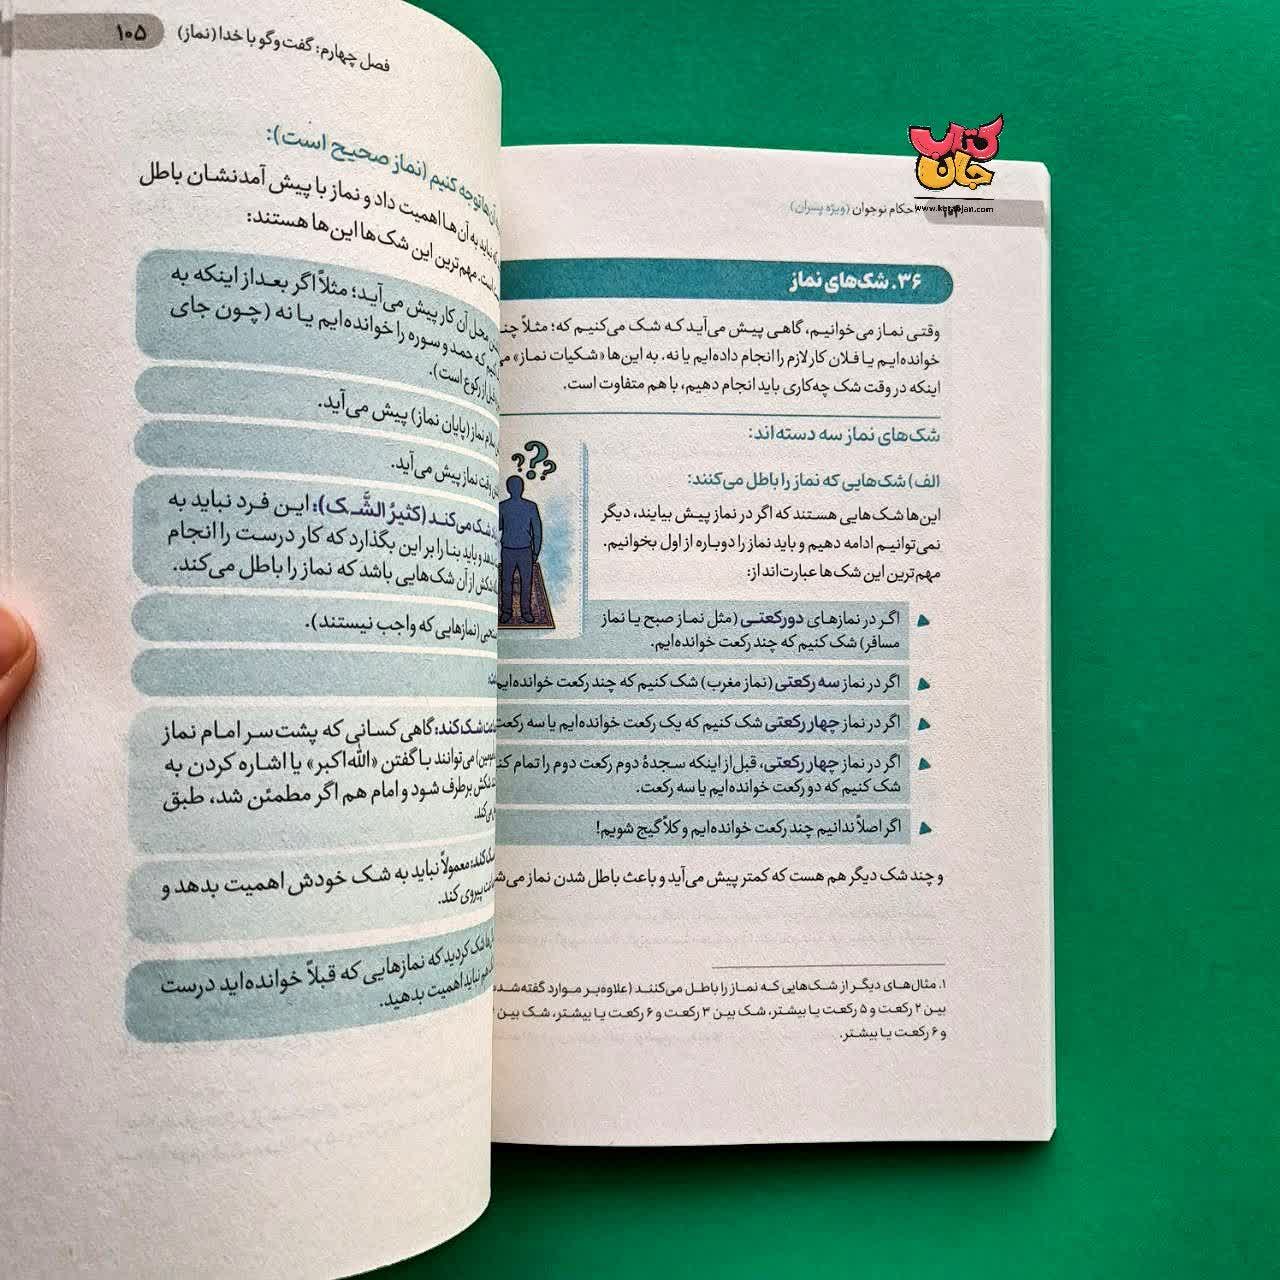 کتاب
جان
www.ketabejan.com
احکام نوجوان (ویژه پسران)
۳۶. شک‌های نماز
وقتی نماز می‌خوانیم، گاهی پیش می‌آید که شک می‌کنیم که؛ مثلاً
خوانده‌ایم یا فلان کار لازم را انجام داده‌ایم یا نه. به این‌ها «شکیات نماز»
اینکه در وقت شک چه‌کاری باید انجام دهیم، با هم متفاوت است.
شک‌های نماز سه دسته‌اند:
الف) شک‌هایی که نماز را باطل می‌کنند:
این‌ها شک‌هایی هستند که اگر در نماز پیش بیایند، دیگر
نمی‌توانیم ادامه دهیم و باید نماز را دوباره از اول بخوانیم.
مهم‌ترین این شک‌ها عبارت‌اند از:
اگر در نمازهای دورکعتی (مثل نماز صبح یا نماز
مسافر) شک کنیم که چند رکعت خوانده‌ایم.
اگر در نماز سه رکعتی (نماز مغرب) شک کنیم که چند رکعت خوانده‌ایم
اگر در نماز چهار رکعتی شک کنیم که یک رکعت خوانده‌ایم یا سه رکعت
اگر در نماز چهار رکعتی، قبل‌از اینکه سجدهٔ دوم رکعت دوم را تمام
شک کنیم که دو رکعت خوانده‌ایم یا سه رکعت.
اگر اصلاً ندانیم چند رکعت خوانده‌ایم و کلاً گیج شویم!
و چند شک دیگر هم هست که کمتر پیش می‌آید و باعث باطل شدن نماز
۱. مثال‌های دیگر از شک‌هایی که نماز را باطل می‌کنند (علاوه‌بر موارد گفته‌شده
بین ۲ رکعت و ۵ رکعت یا بیشتر، شک بین ۳ رکعت و ۶ رکعت یا بیشتر، شک بین
و ۶ رکعت یا بیشتر.
فصل چهارم: گفت‌وگو با خدا (نماز) ۱۰۵
آن‌ها توجه کنیم (نماز صحیح است):
نباید به آن‌ها اهمیت داد و نماز با پیش آمدنشان باطل
است. مهم‌ترین این شک‌ها این‌ها هستند:
محل آن کار پیش می‌آید؛ مثلاً اگر بعد از اینکه به
که حمد و سوره را خوانده‌ایم یا نه (چون جای
قبل از رکوع است).
سلام نماز (پایان نماز) پیش می‌آید.
رفت نماز پیش می‌آید.
شک می‌کند (کثیرُ الشَّک): این فرد نباید به
بدهد و باید بنا را بر این بگذارد که کار درست را انجام
شکش از آن شک‌هایی باشد که نماز را باطل می‌کند.
(نمازهایی که واجب نیستند).
شک کند: گاهی کسانی که پشت‌سر امام نماز
می‌توانند با گفتن «الله‌اکبر» یا اشاره کردن به
شکش برطرف شود و امام هم اگر مطمئن شد، طبق
شک کند: معمولاً نباید به شک خودش اهمیت بدهد و
پیروی کند.
شک کردید که نمازهایی که قبلاً خوانده‌اید درست
نباید اهمیت بدهید.